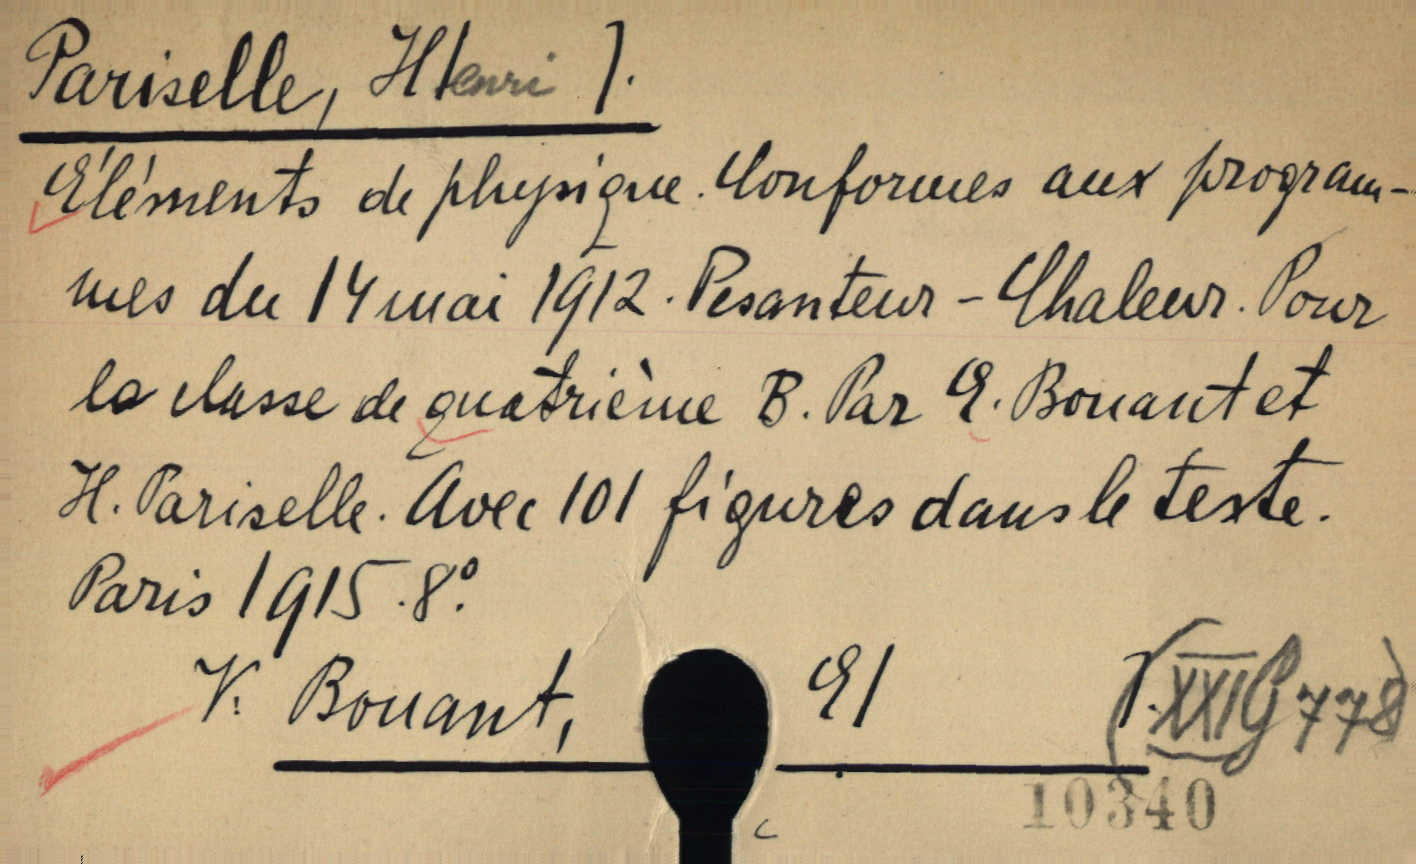 Pariselle, H[enri].
Éléments de physique. Conformes aux program-
mes du 14 mai 1912. Pesanteur - Chaleur. Pour
la classe de quatrième B. Par E. Bouant et
H. Pariselle. Avec 101 figures dans le texte.
Paris 1915. 8°.
V. Bouant, E[ ]. (XXI G 778)
10340